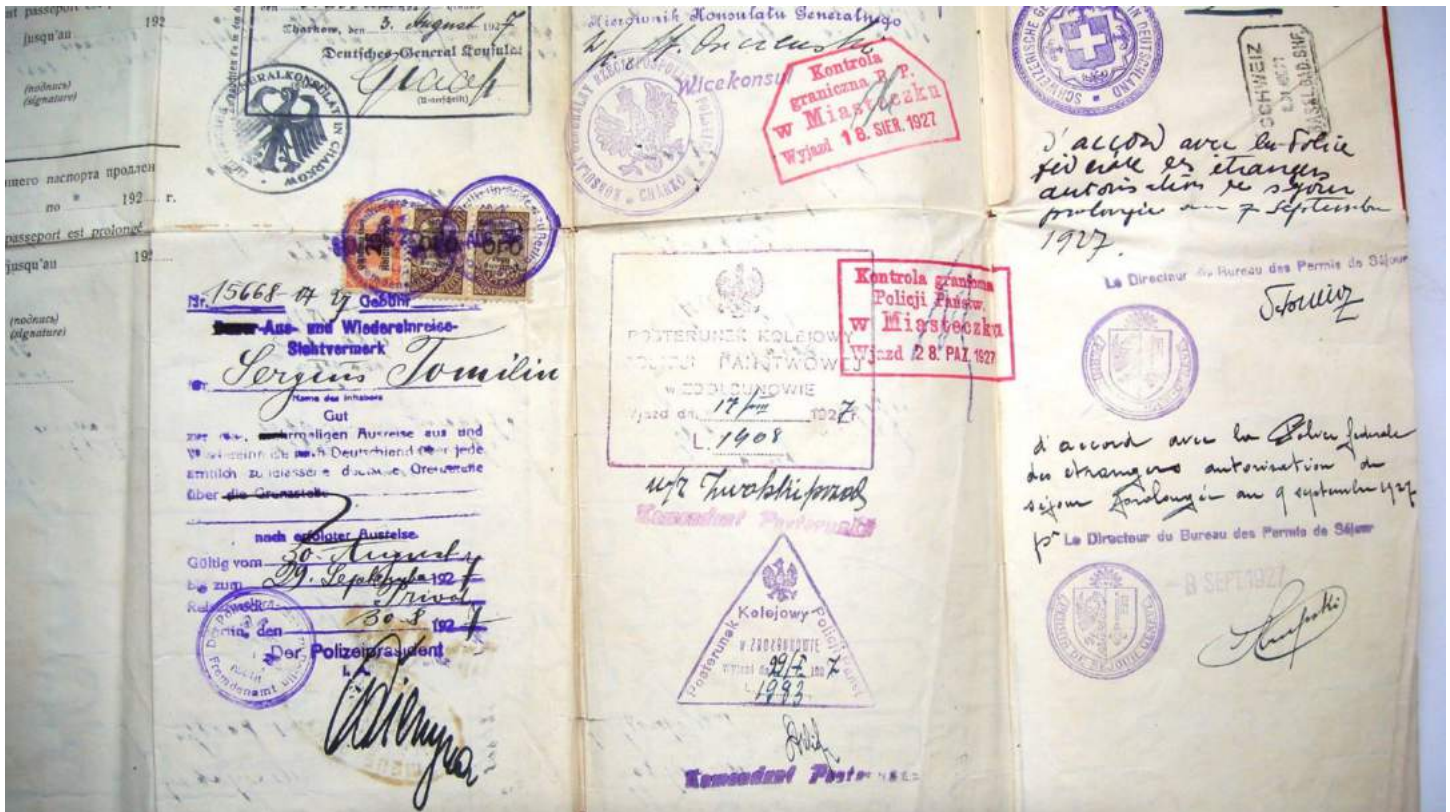 passeport est
jusqu'au 192
(подпись)
(signature)
щего паспорта продлен
по " 192 г.
passeport est prolongé
jusqu'au 192
(подпись)
(signature)
Charkow, den 3. August 1927
Deutsches General Konsulat
(Unterschrift)
GENERALKONSULAT IN CHARKOW
Nr. 15668-27 Gebühr
Dauer-Aus- und Wiedereinreise-
Sichtvermerk
Sergius Tomilin
Name des Inhabers
Gut
zur maligen Ausreise aus und
nach Deutschland über jede
amtlich zugelassene deutsche Grenzstelle
über die Grenzstelle
nach erfolgter Ausreise.
Gültig vom 30. August
bis zum 29. September 1927
Reisezweck Privat
Berlin, den 30. 8. 1927
Der Polizeipräsident
I. A.
Fremdenamt
Kierownik Konsulatu Generalnego
Wicekonsul
KONSULAT GENERALNY RZECZYPOSPOLITEJ POLSKIEJ CHARKOW
Kontrola
graniczna P. P.
w Miasteczku
Wyjazd 18. SIER. 1927
POSTERUNEK KOLEJOWY
POLICJI PAŃSTWOWEJ
w ZDOŁBUNOWIE
Wjazd dn. 17/VIII 1927 r.
L. 1908
Komendant Posterunku
Kontrola graniczna
Policji Państw.
w Miasteczku
Wjazd 28. PAZ. 1927
Posterunek Kolejowy Policji Państ.
w ZDOŁBUNOWIE
Wyjazd dn. 29/X 1927
L. 1983
Komendant Posterunku
SCHWEIZERISCHE GESANDTSCHAFT IN DEUTSCHLAND
SCHWEIZ
BASEL BAD. BHF.
d'accord avec la Police
fédérale des étrangers
autorisation de séjour
prolongée au 7 Septembre
1927.
Le Directeur du Bureau des Permis de Séjour
d'accord avec la Police fédérale
des étrangers autorisation de
séjour prolongée au 9 septembre 1927
pr Le Directeur du Bureau des Permis de Séjour
- 8 SEPT. 1927